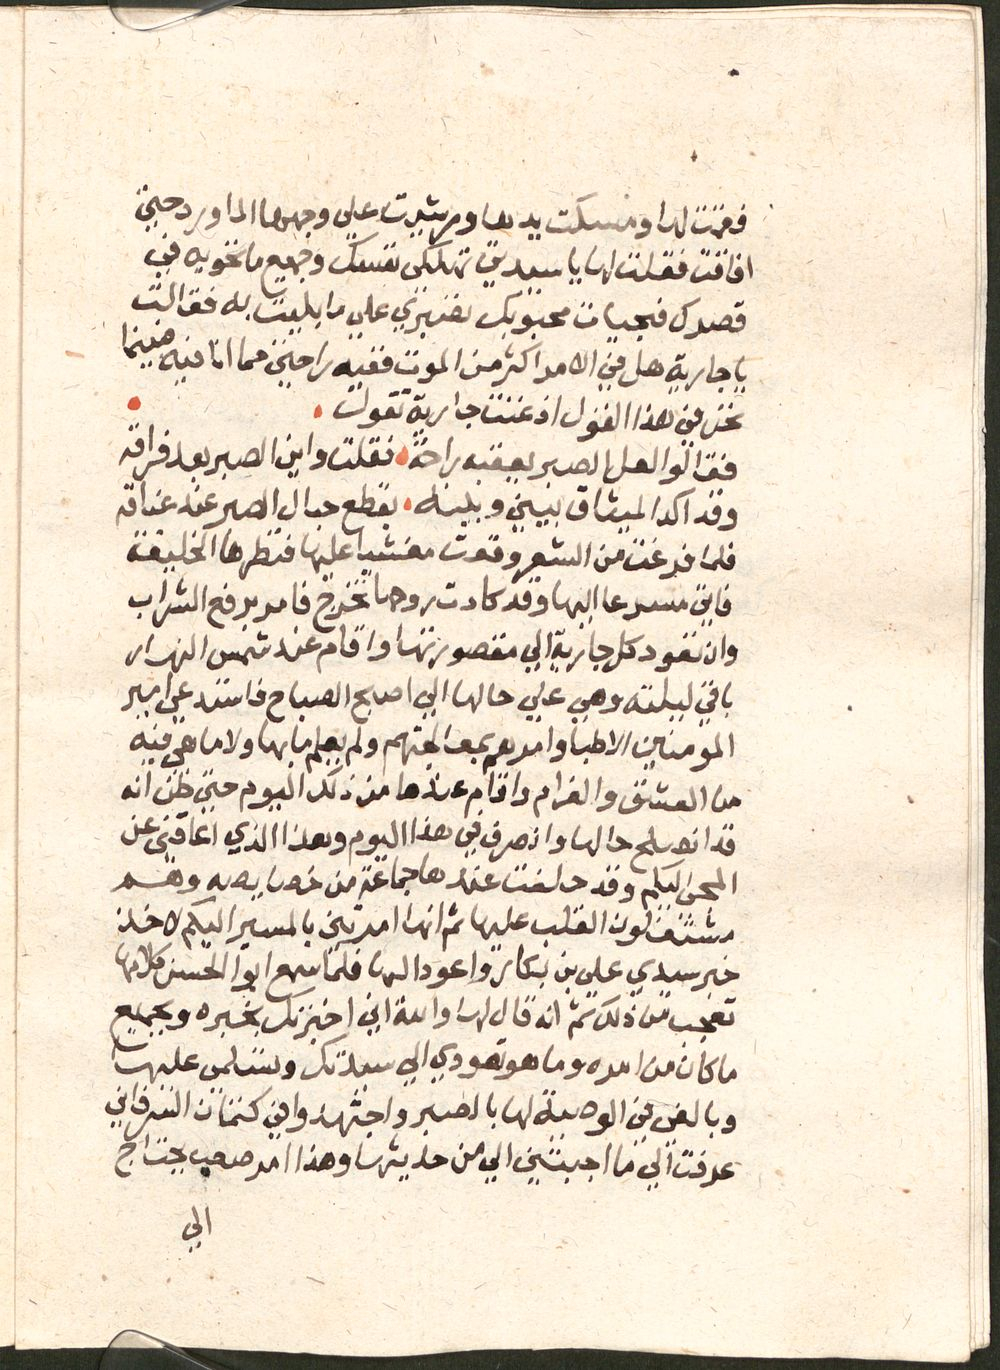 فقمت لها ومسكت يدها ورشيت علي وجهها الماورد حتي
افاقت فقلت لها يا سيدتي تهلكي نفسك وجميع ما تحويه في
قصرك فبحيات محبوبك تصبري علي ما بليت به فقالت
يا جارية هل في الامر اكثر من الموت ففيه راحتي مما انا فيه فبينما
نحن في هذا القول اذ غنت جارية تقول
فقالوا لعل الصبر يعقبه راحة فقلت واين الصبر بعد فراقه
وقد اكد الميثاق بيني وبينه بقطع حبال الصبر عند عناقه
فلما فرغت من الشعر وقعت مغشيا عليها فنظرها الخليفة
فاتي مسرعا اليها وقد كادت روحها تخرج فامر برفع الشراب
وان تعود كل جارية الي مقصورتها واقام عند شمس النهار
باقي ليلته وهي علي حالها الي اصبح الصباح فاستدعي امير
المومنين الاطبا وامرهم بمعالجتهم ولم يعلم ما بها ولا ما هي فيه
من العشق والغرام واقام عندها من ذلك اليوم حتي ظن انه
قد انصلح حالها وانصرف في هذا اليوم وهذا الذي اعاقني عن
المجئ اليكم وقد خلفت عندها جماعة من خصايصه وهم
مشتغلون القلب عليها ثم انها امرتني بالمسير اليكم لاخذ
خبر سيدي علي بن بكار واعود اليها فلما سمع ابو الحسن كلامها
تعجب من ذلك ثم انه قال لها والله اني اخبرتك بخبره وبجميع
ما كان من امره وما هو تعودي الي سيدتك وتسلمي عليها
وبالغي في الوصية لها بالصبر واجتهدوا في كتمان السر فاني
عرفت الي ما اجبتيني الي من حديثها وهذا امر صعب يحتاج
الي